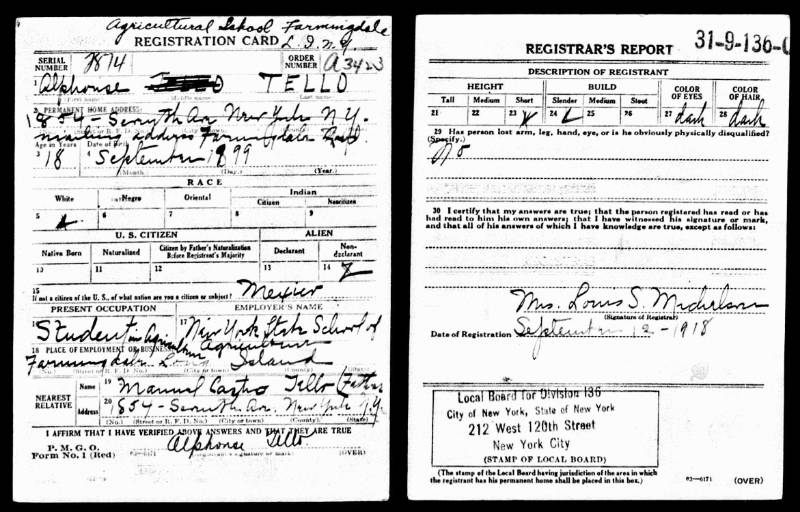 Agricultural School Farmingdale
REGISTRATION CARD L. I. N. Y.
SERIAL NUMBER 7874 ORDER NUMBER A3423
1 Alphonse TELLO
First name Middle name Last name
2 PERMANENT HOME ADDRESS:
1854 - Seventh Av New York N.Y.
mailing address Farmingdale
Age in Years Date of Birth
3 18 4 September 1899
(Month) (Day) (Year.)
RACE
White Negro Oriental Indian
Citizen Noncitizen
5 6 7 8 9
U. S. CITIZEN ALIEN
Native Born Naturalized Citizen by Father's Naturalization Before Registrant's Majority Declarant Non-declarant
10 11 12 13 14
15 If not a citizen of the U. S., of what nation are you a citizen or subject? Mexico
PRESENT OCCUPATION EMPLOYER'S NAME
16 Student in Agriculture 17 New York State School of
Agriculture
18 PLACE OF EMPLOYMENT OR BUSINESS:
Farmingdale Long Island
(No.) (Street or R. F. D. No.) (City or town) (County) (State)
NEAREST RELATIVE Name 19 Manuel Castro Tello (Father
Address 20 1854 - Seventh Av. New York N.Y.
(No.) (Street or R. F. D. No.) (City or town) (County) (State)
I AFFIRM THAT I HAVE VERIFIED ABOVE ANSWERS AND THAT THEY ARE TRUE
P. M. G. O.
Form No. 1 (Red) Alphonse Tello
(Registrant's signature or mark) (OVER)
31-9-136-
REGISTRAR'S REPORT
DESCRIPTION OF REGISTRANT
HEIGHT BUILD COLOR OF EYES COLOR OF HAIR
Tall Medium Short Slender Medium Stout
21 22 23 24 25 26 27 dark 28 dark
29 Has person lost arm, leg, hand, eye, or is he obviously physically disqualified?
(Specify.) No
30 I certify that my answers are true; that the person registered has read or has
had read to him his own answers; that I have witnessed his signature or mark,
and that all of his answers of which I have knowledge are true, except as follows:
Mrs. Louis S. Michelson
(Signature of Registrar)
Date of Registration September 12 - 1918
Local Board for Division 136
City of New York, State of New York
212 West 120th Street
New York City
(STAMP OF LOCAL BOARD)
(The stamp of the Local Board having jurisdiction of the area in which
the registrant has his permanent home shall be placed in this box.)
03-6171 (OVER)